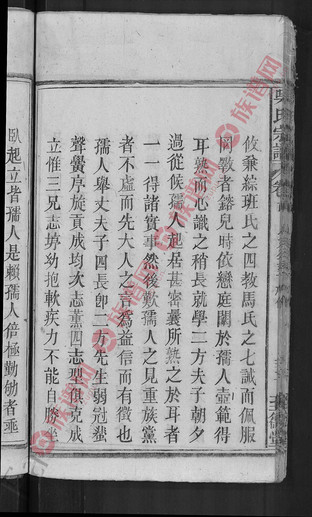 攸兼綜班氏之四教馬氏之七誡而佩服
罔斁者鎔兒時依戀庭闈於孺人壼範得
耳熟而心識之稍長就學二方夫子朝夕
過從候孺人起居甚密曩所熟之於耳者
一一得諸實事然後歎孺人之見重族黨
者不虛而先大人之言為益信而有徵也
孺人舉丈夫子四長卽二方先生弱冠蜚
聲黌序旋貢成均次志薰四志型俱克成
立惟三兄志婷幼抱軟疾力不能自勝
臥起立者孺人是賴孺人倍極勤劬者乘
氏宗譜 卷
族譜网